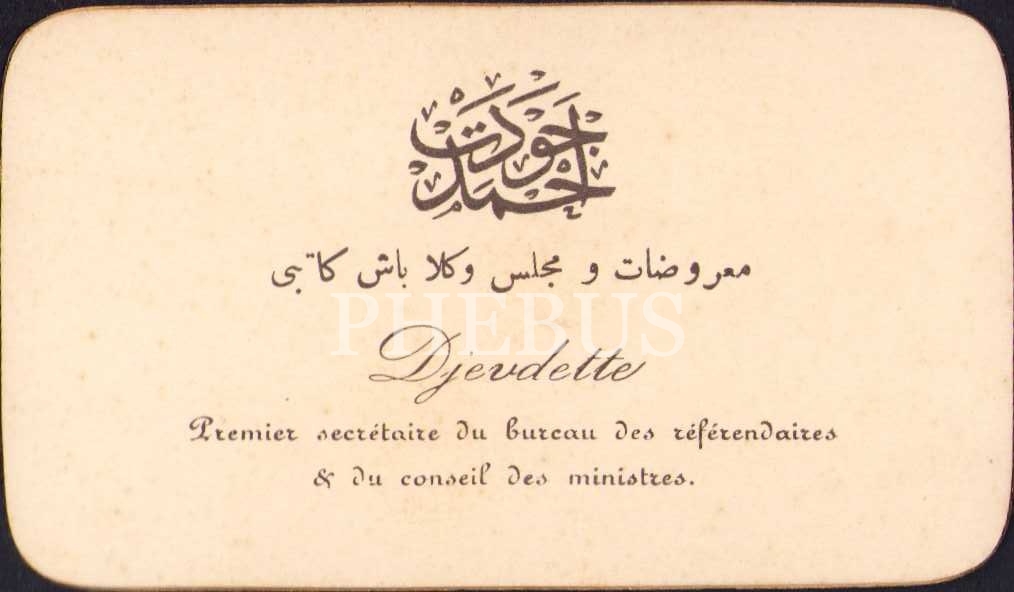 احمد جودت
معروضات و مجلس وكلا باش كاتبى
PHEBUS
Djevdette
Premier secrétaire du bureau des référendaires
& du conseil des ministres.